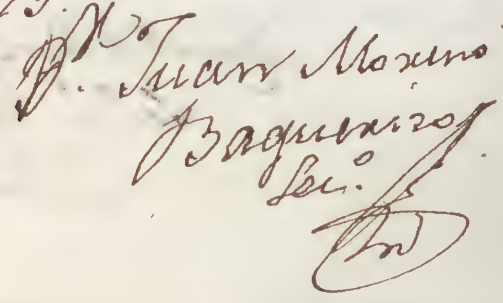 Dn. Juan Moreno
Baquerizo
Seco.